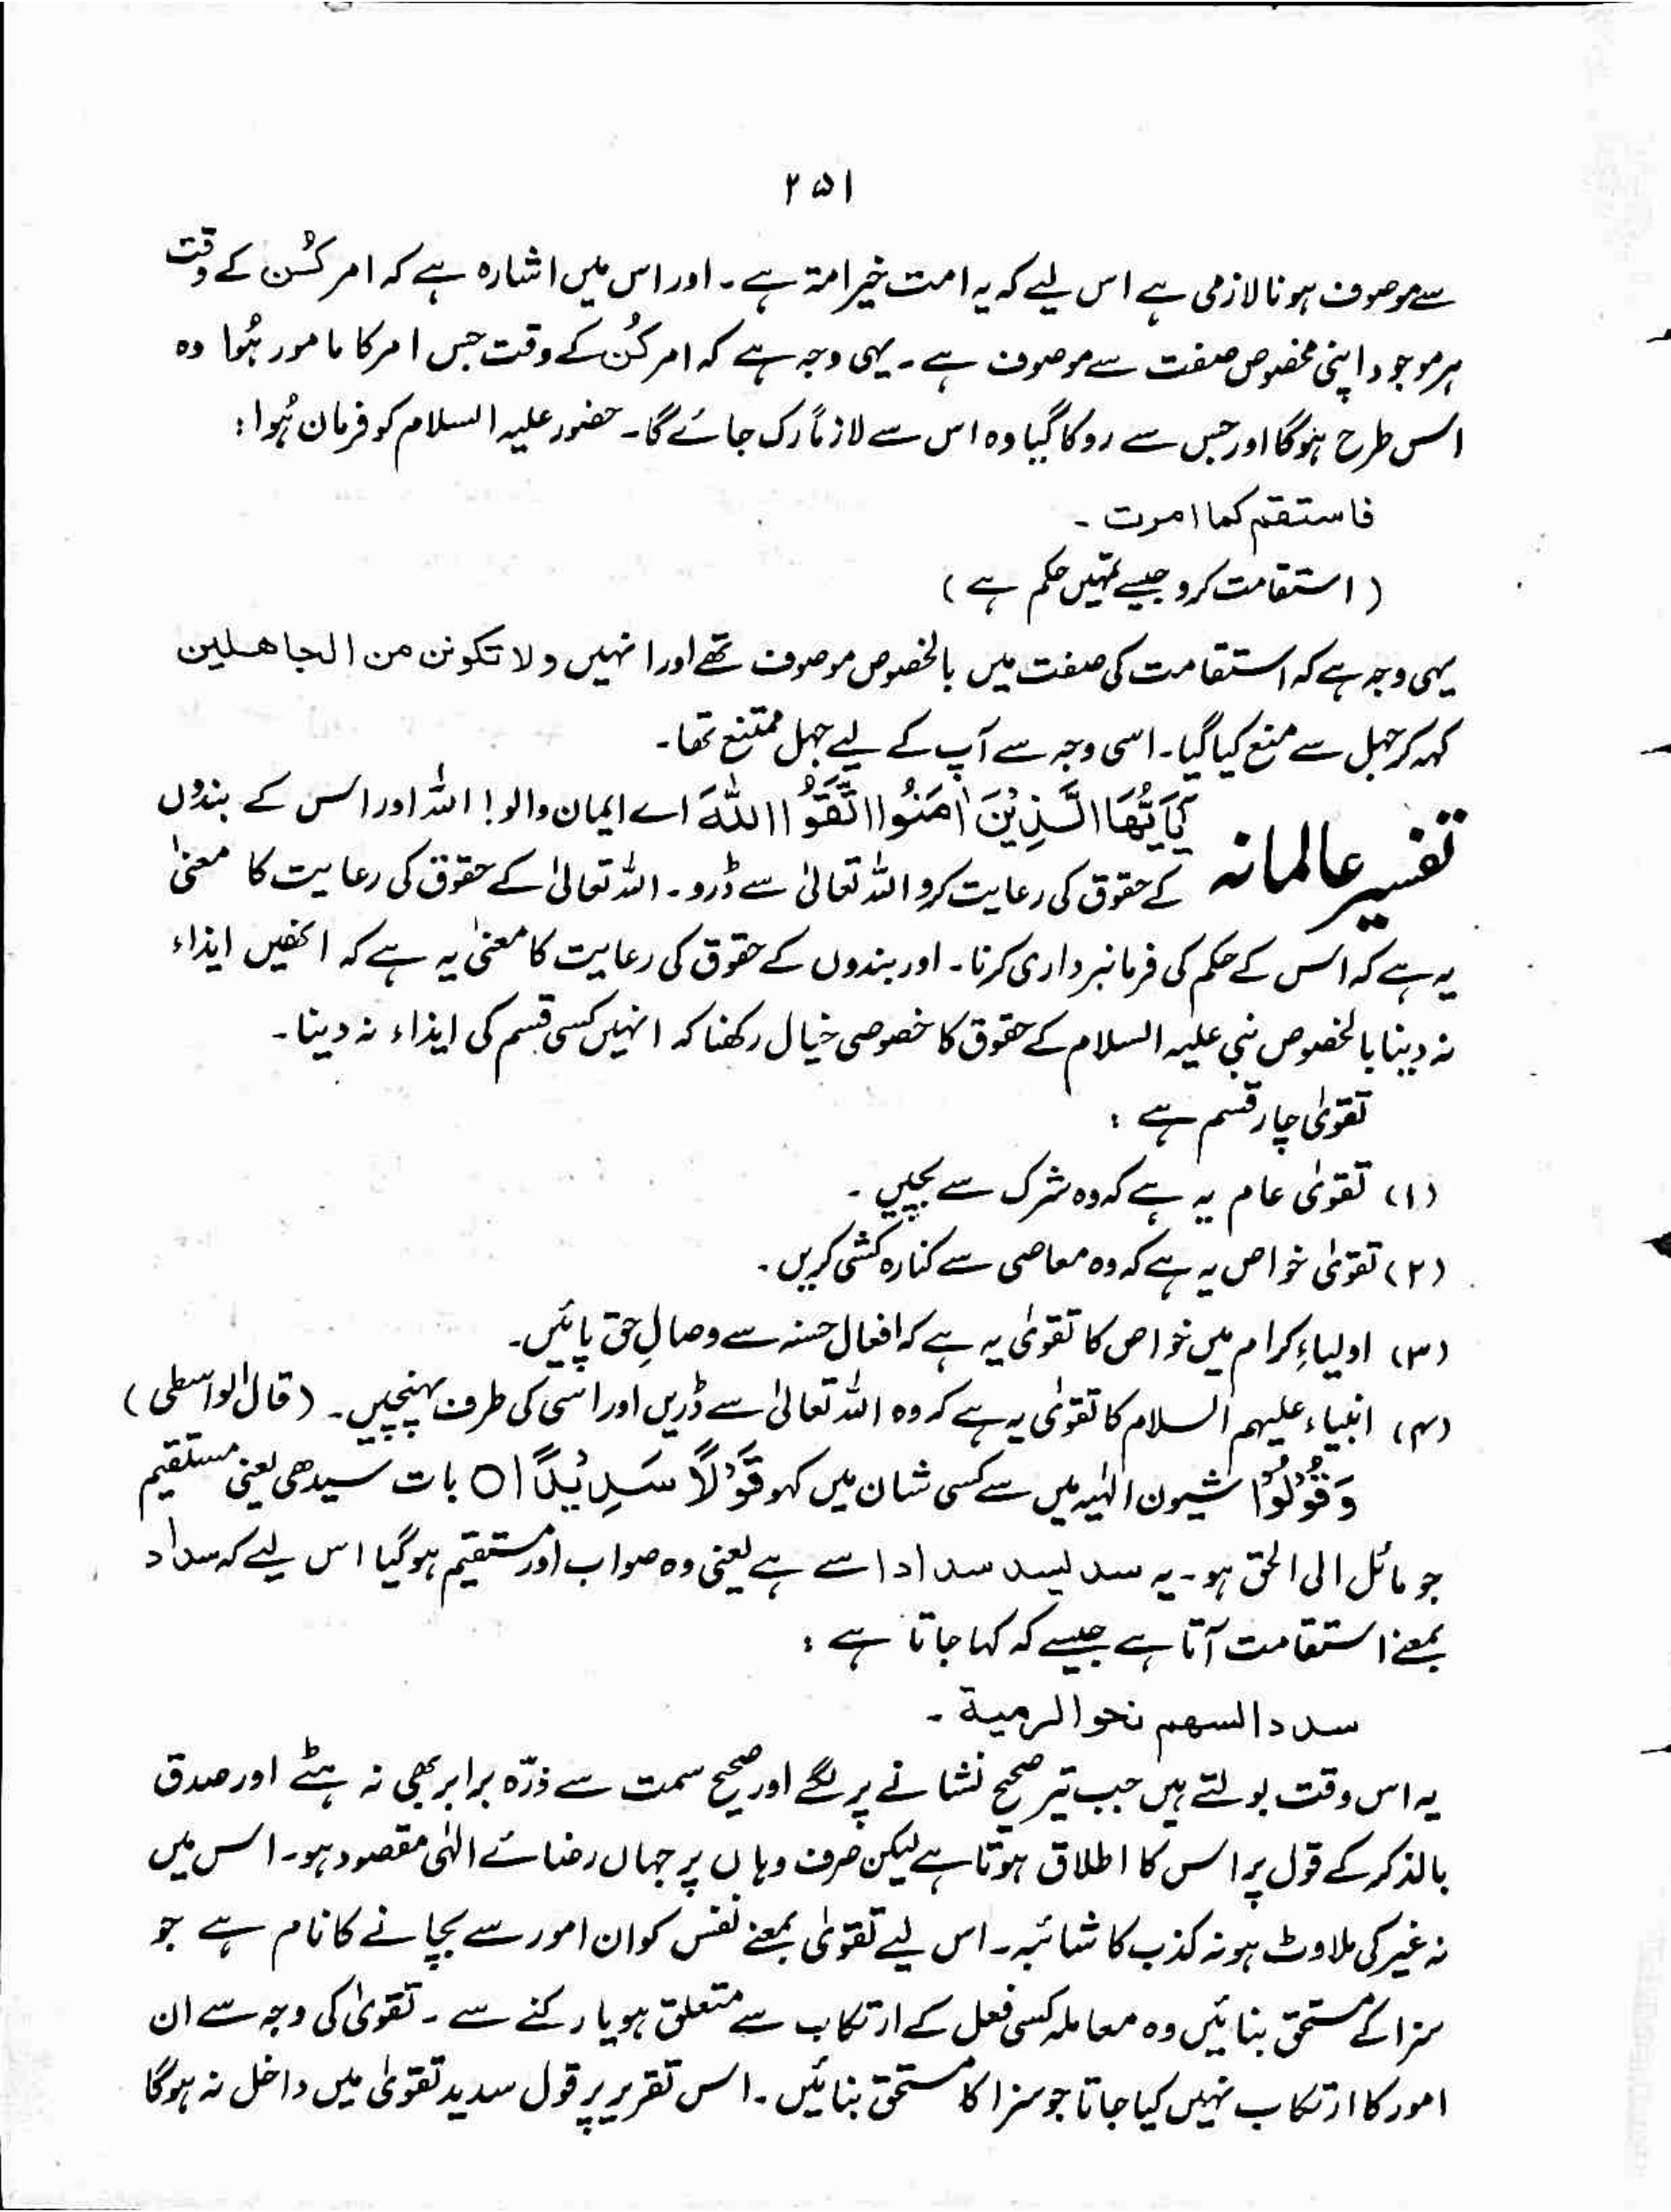 ۲۵۱
سے موصوف ہونا لازمی ہے اس لیے کہ یہ امت خیر امۃ ہے۔ اور اس میں اشارہ ہے کہ امر کُن کے وقت
ہر موجود اپنی مخصوص صفت سے موصوف ہے۔ یہی وجہ ہے کہ امر کُن کے وقت جس امر کا مامور ہُوا وہ
اس طرح ہوگا اور جس سے روکا گیا وہ اس سے لازماً رک جائے گا۔ حضور علیہ السلام کو فرمان ہُوا:
فاستقم کما امرت ۔
(استقامت کرو جیسے تمہیں حکم ہے)
یہی وجہ ہے کہ استقامت کی صفت میں بالخصوص موصوف تھے اور انہیں ولا تکونن من الجاھلین
کہہ کر جہل سے منع کیا گیا۔ اسی وجہ سے آپ کے لیے جہل ممتنع تھا۔
تفسیر عالمانہ یٰٓاَیُّھَا الَّذِیْنَ اٰمَنُوا اتَّقُوا اللّٰہَ اے ایمان والو! اللہ اور اس کے بندوں
کے حقوق کی رعایت کرو اللہ تعالیٰ سے ڈرو۔ اللہ تعالیٰ کے حقوق کی رعایت کا معنیٰ
یہ ہے کہ اس کے حکم کی فرمانبرداری کرنا۔ اور بندوں کے حقوق کی رعایت کا معنیٰ یہ ہے کہ انھیں ایذاء
نہ دینا بالخصوص نبی علیہ السلام کے حقوق کا خصوصی خیال رکھنا کہ انہیں کسی قسم کی ایذاء نہ دینا۔
تقویٰ چار قسم ہے :
(۱) تقویٰ عام یہ ہے کہ وہ شرک سے بچیں ۔
(۲) تقویٰ خواص یہ ہے کہ وہ معاصی سے کنارہ کشی کریں ۔
(۳) اولیاءِ کرام میں خواص کا تقویٰ یہ ہے کہ افعال حسنہ سے وصالِ حق پائیں۔
(۴) انبیاء علیہم السلام کا تقویٰ یہ ہے کہ وہ اللہ تعالیٰ سے ڈریں اور اسی کی طرف پہنچیں۔ (قال الواسطی)
وَقُوْلُوْا شیون الٰہیہ میں سے کسی شان میں کہو قَوْلًا سَدِیْدًا ○ بات سیدھی یعنی مستقیم
جو مائل الی الحق ہو۔ یہ سد یسد سدادا سے ہے یعنی وہ صواب اور مستقیم ہوگیا اس لیے کہ سداد
بمعنے استقامت آتا ہے جیسے کہ کہا جاتا ہے :
سدد السھم نحو الرمیۃ ۔
یہ اس وقت بولتے ہیں جب تیر صحیح نشانے پر لگے اور صحیح سمت سے ذرّہ برابر بھی نہ ہٹے اور صدق
بالذکر کے قول پر اس کا اطلاق ہوتا ہے لیکن صرف وہاں پر جہاں رضائے الٰہی مقصود ہو۔ اس میں
نہ غیر کی ملاوٹ ہو نہ کذب کا شائبہ۔ اس لیے تقویٰ بمعنے نفس کو ان امور سے بچانے کا نام ہے جو
سزا کے مستحق بنائیں وہ معاملہ کسی فعل کے ارتکاب سے متعلق ہو یا رکنے سے ۔ تقویٰ کی وجہ سے ان
امور کا ارتکاب نہیں کیا جاتا جو سزا کا مستحق بنائیں ۔ اس تقریر پر قول سدید تقویٰ میں داخل نہ ہوگا